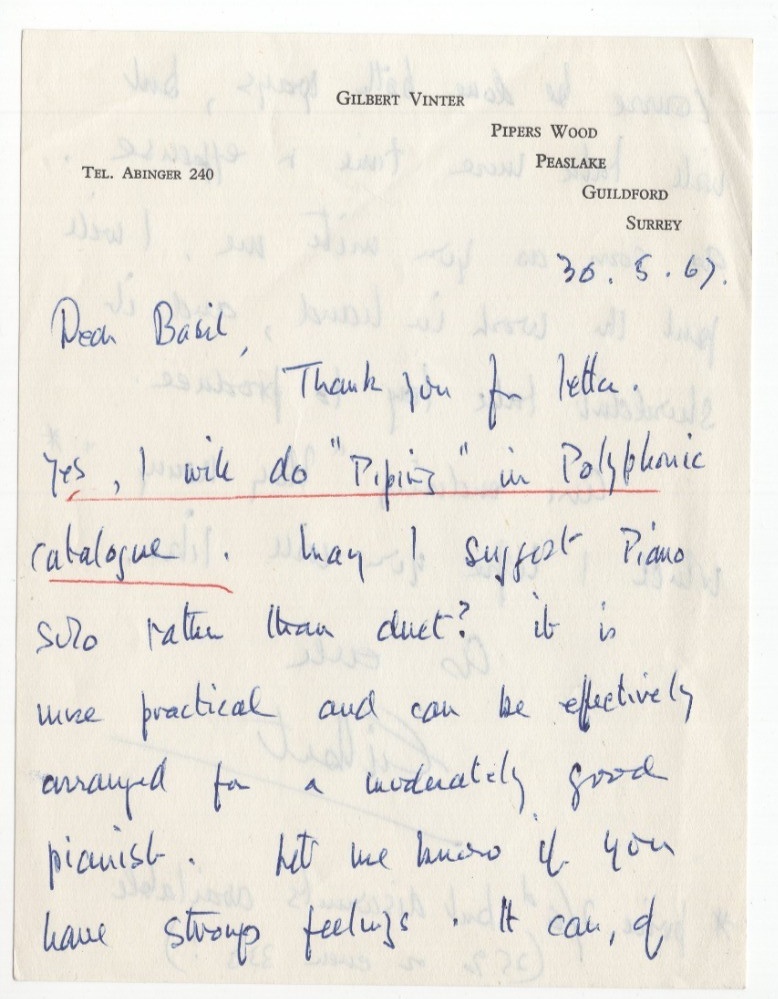 GILBERT VINTER
PIPERS WOOD
PEASLAKE
TEL. ABINGER 240
GUILDFORD
SURREY
30. 5. 67.
Dear Basil,
Thank you for letter.
Yes, I will do "Piping" in Polyphonic
catalogue. May I suggest Piano
solo rather than duet? it is
more practical and can be effectively
arranged for a moderately good
pianist. Let me know if you
have strong feelings. It can, of